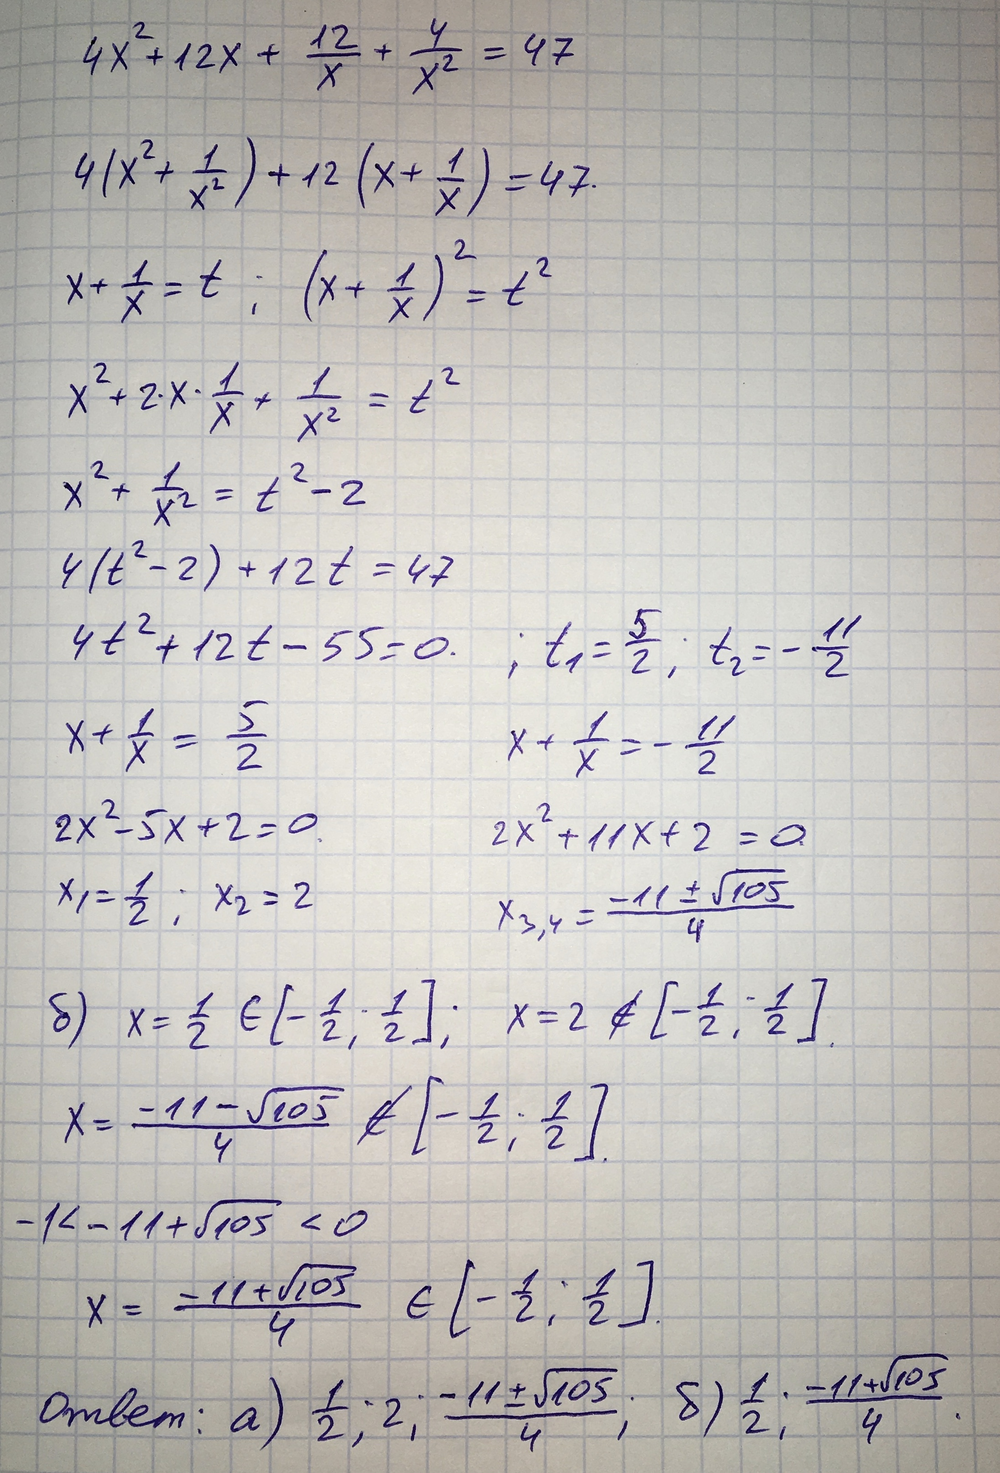 4x² + 12x + 12/x + 4/x² = 47
4(x² + 1/x²) + 12(x + 1/x) = 47.
x + 1/x = t ; (x + 1/x)² = t²
x² + 2·x·1/x + 1/x² = t²
x² + 1/x² = t² - 2
4(t² - 2) + 12t = 47
4t² + 12t - 55 = 0. ; t₁ = 5/2 ; t₂ = -11/2
x + 1/x = 5/2 x + 1/x = -11/2
2x² - 5x + 2 = 0. 2x² + 11x + 2 = 0.
x₁ = 1/2 ; x₂ = 2 x₃,₄ = (-11 ± √105)/4
б) x = 1/2 ∈ [-1/2 ; 1/2] ; x = 2 ∉ [-1/2 ; 1/2].
x = (-11 - √105)/4 ∉ [-1/2 ; 1/2].
-1 < -11 + √105 < 0
x = (-11 + √105)/4 ∈ [-1/2 ; 1/2].
Ответ: а) 1/2 ; 2 ; (-11 ± √105)/4 ; б) 1/2 ; (-11 + √105)/4.